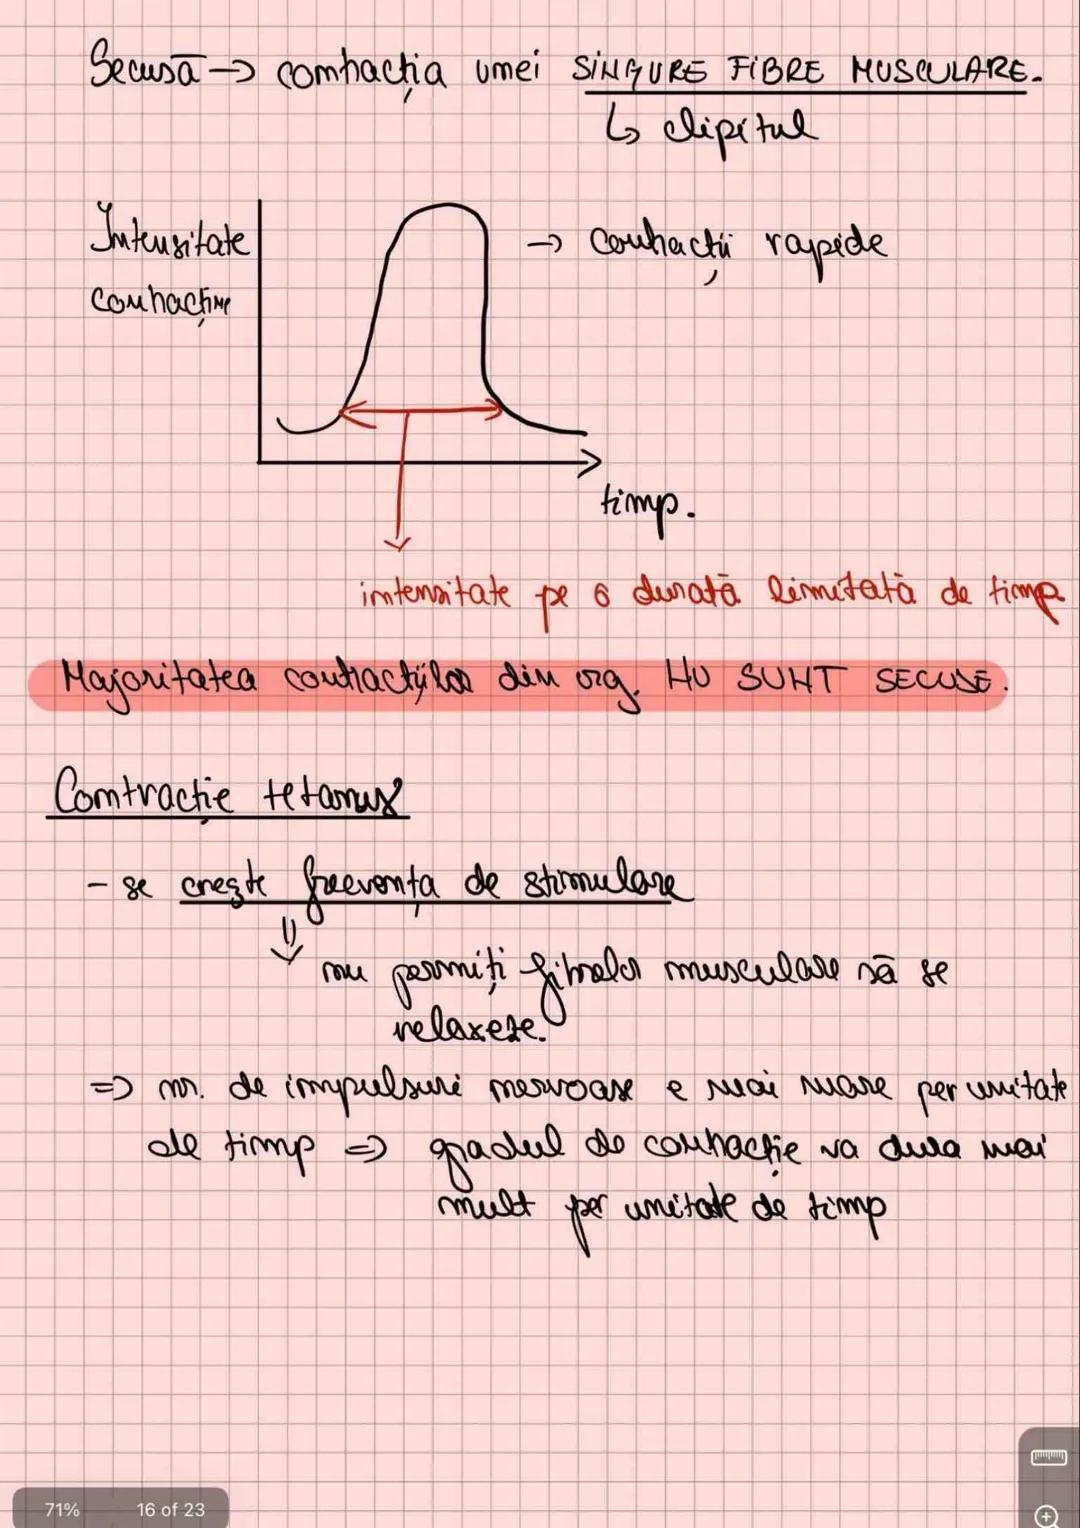 Secusă → contracția unei SINGURE FIBRE MUSCULARE.
↳ clipitul
Intensitate
contracține
→ contracții rapide
timp.
intensitate pe o durată limitată de timp
Majoritatea contracțiilor din org. NU SUNT SECUSE.
Contracție tetanus
- se crește frecvența de stimulare
⇓
nu permiți fibrelor musculare să se
relaxeze.
⇒ nr. de impulsuri nervoase e mai mare per unitate
de timp ⇒ gradul de contracție va dura mai
mult per unitate de timp
71% 16 of 23